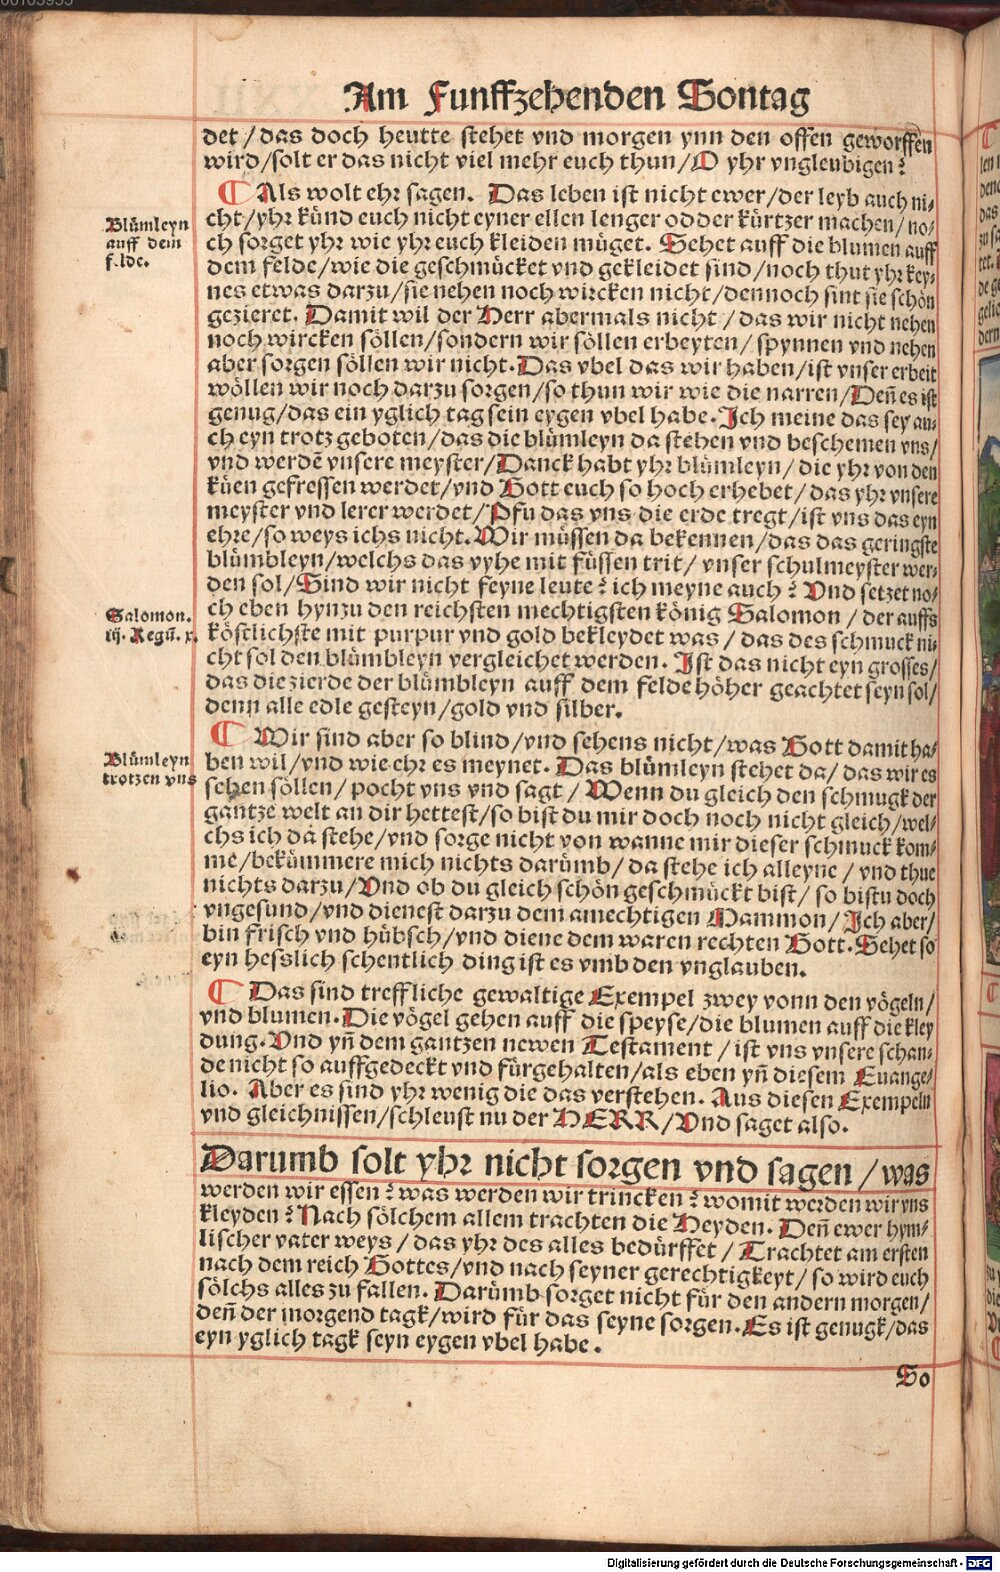 Am Funffzehenden Sontag
det / das doch heutte stehet vnd morgen ynn den offen geworffen
wird / solt er das nicht viel mehr euch thun / O yhr vngleubigen?
¶ Als wolt ehr sagen. Das leben ist nicht ewer / der leyb auch ni-
cht / yhr künd euch nicht eyner ellen lenger odder kürtzer machen / no-
ch sorget yhr wie yhr euch kleiden müget. Sehet auff die blumen auff
dem felde / wie die geschmücket vnd gekleidet sind / noch thut yhr key-
nes etwas darzu / sie nehen noch wircken nicht / dennoch sint sie schön
gezieret. Damit wil der Herr abermals nicht / das wir nicht nehen
noch wircken söllen / sondern wir söllen erbeyten / spynnen vnd nehen
aber sorgen söllen wir nicht. Das vbel das wir haben / ist vnser erbeit
wöllen wir noch darzu sorgen / so thun wir wie die narren / Deñ es ist
genug / das ein yglich tag sein eygen vbel habe. Ich meine das sey au-
ch eyn trotz geboten / das die blümleyn da stehen vnd beschemen vns /
vnd werdē vnsere meyster / Danck habt yhr blümleyn / die yhr von den
küen gefressen werdet / vnd Gott euch so hoch erhebet / das yhr vnsere
meyster vnd lerer werdet / Pfu das vns die erde tregt / ist vns das eyn
ehre / so weys ichs nicht. Wir müssen da bekennen / das das geringste
blümbleyn / welchs das vyhe mit füssen trit / vnser schulmeyster wer-
den sol / Sind wir nicht feyne leute? ich meyne auch? Vnd setzet no-
ch eben hynzu den reichsten mechtigsten könig Salomon / der auffs
köstlichste mit purpur vnd gold bekleydet was / das des schmuck ni-
cht sol den blümbleyn vergleichet werden. Ist das nicht eyn grosses /
das die zierde der blümbleyn auff dem felde höher geachtet seyn sol /
denn alle edle gesteyn / gold vnd silber.
¶ Wir sind aber so blind / vnd sehens nicht / was Gott damit ha-
ben wil / vnd wie ehr es meynet. Das blümleyn stehet da / das wir es
sehen söllen / pocht vns vnd sagt / Wenn du gleich den schmugk der
gantze welt an dir hettest / so bist du mir doch noch nicht gleich / wel-
chs ich da stehe / vnd sorge nicht von wanne mir dieser schmuck kom-
me / bekümmere mich nichts darümb / da stehe ich alleyne / vnd thue
nichts darzu / Vnd ob du gleich schön geschmückt bist / so bistu doch
vngesund / vnd dienest darzu dem amechtigen Mammon / Ich aber /
bin frisch vnd hübsch / vnd diene dem waren rechten Gott. Sehet so
eyn hesslich schentlich ding ist es vmb den vnglauben.
¶ Das sind treffliche gewaltige Exempel zwey vonn den vögeln /
vnd blumen. Die vögel gehen auff die speyse / die blumen auff die kley
dung. Vnd yñ dem gantzen newen Testament / ist vns vnsere schan-
de nicht so auffgedeckt vnd fürgehalten / als eben yñ diesem Euange-
lio. Aber es sind yhr wenig die das verstehen. Aus diesen Exempeln
vnd gleichnissen / schleust nu der HERR / Vnd saget also.
Darumb solt yhr nicht sorgen vnd sagen / was
werden wir essen? was werden wir trincken? womit werden wir vns
kleyden? Nach sölchem allem trachten die Heyden. Deñ ewer hym-
lischer vater weys / das yhr des alles bedürffet / Trachtet am ersten
nach dem reich Gottes / vnd nach seyner gerechtigkeyt / so wird euch
sölchs alles zu fallen. Darümb sorget nicht für den andern morgen /
deñ der morgend tagk / wird für das seyne sorgen. Es ist genugk / das
eyn yglich tagk seyn eygen vbel habe.
So
Blümleyn
auff dem
felde.
Salomon.
iij. Regū. x.
Blümleyn
trotzen vns
Digitalisierung gefördert durch die Deutsche Forschungsgemeinschaft - DFG